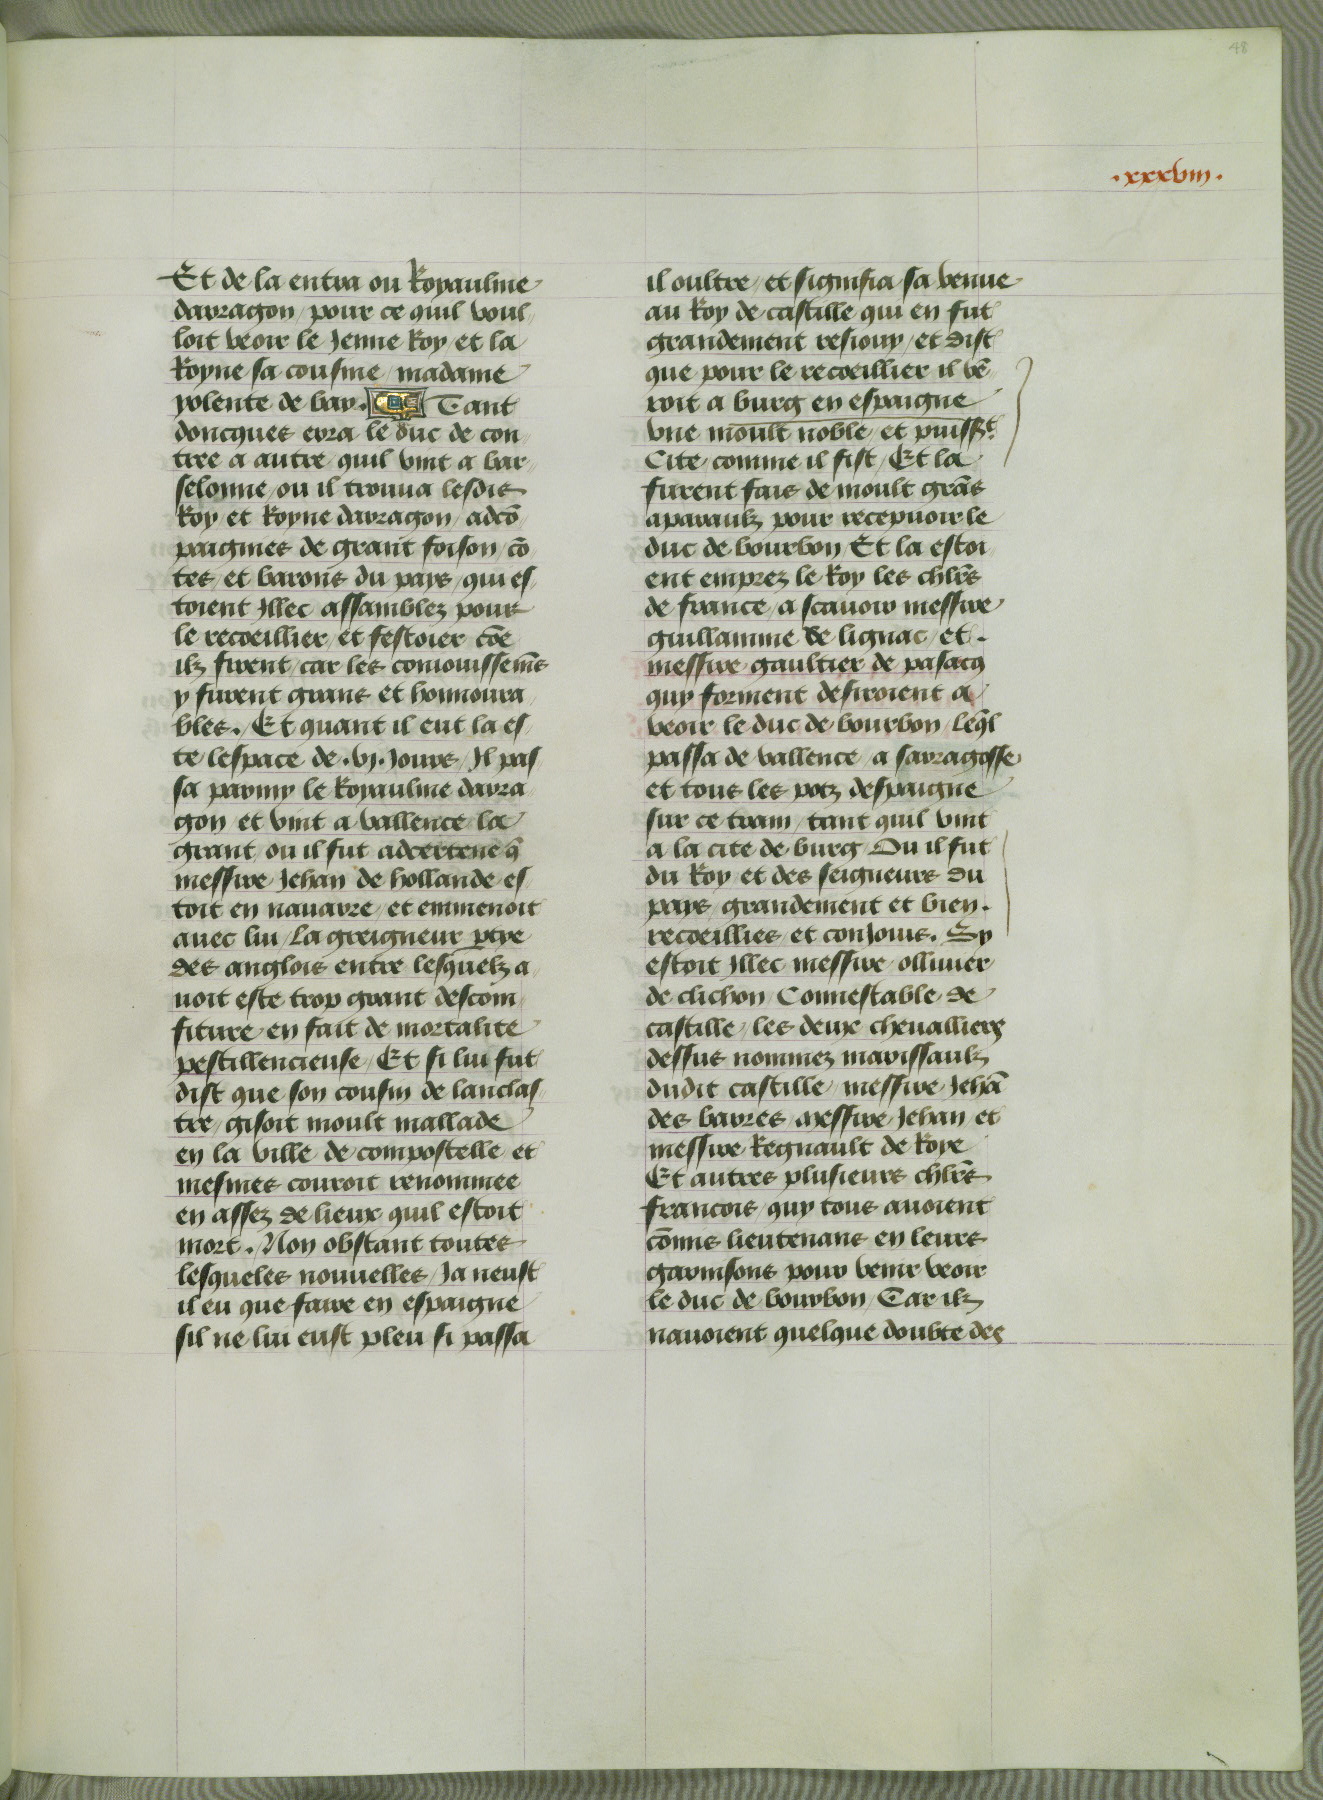 48
.xxxviii.
Et de la entra ou Royaulme
darragon / pour ce quil voul
loit veoir le Jenne Roy / et la
Royne sa cousine / madame
yolente de bar. Tant
doncques erra le duc de con
tree a autre / quil vint a bar
selonne / ou il trouua lesdis
Roy et Royne darragon / adcō
paignies de grant foison / cō
tes / et barons du pays / qui es
toient Illec assamblez pour
le recoeillier / et festoier cōe
ilz firent / car les coniouissemēs
y furent grans et honnoura
bles. / Et quant il eut la es
te lespace de .vj. Jours / Il pas
sa parmy le Royaulme darra
gon et vint a vallence la
grant / ou il fut adcertene q̄
messire Jehan de hollande es
toit en nauarre / et emmenoit
auec lui / la greigneur ptye
des anglois entre lesquelz a
uoit este trop grant descom
fiture / en fait de mortalite
pestillencieuse / Et si lui fut
dist que son cousin de lanclas
tre / gisoit moult mallade
en la ville de compostelle et
mesmes couroit renommee
en assez de lieux quil estoit
mort. / Non obstant toutes
lesqueles nouuelles / Ja neust
il eu que faire en espaigne
sil ne lui eust pleu si passa
il oultre / et signifia sa venue
au Roy de castille qui en fut
grandement resiouy / et dist
que pour le recoeillier il vē
roit a burg en espaigne
vne moult noble et puissāt
Cite / comme il fist / Et la
furent fais de moult grās
aparaulz pour recepuoir le
duc de bourbon / Et la estoi
ent emprez le Roy les chlr̄s
de france / a scauoir messire
guillamme de lignac / et.
messire gaultier de pasacq
quy forment desiroient a
veoir le duc de bourbon / leq̄l
passa de vallence / a sarragosse
et tous les portz despaigne
sur ce train / tant quil vint
a la cite de burg Ou il fut
du Roy et des seigneurs du
pays grandement et bien.
recoeillies et conJouis. Sy
estoit Illec messire olliuier
de clichon Connestable de
castille / les deux cheualliers
dessus nommez marissaulz
dudit castille / messire Jehā
des barres messire Jehan et
messire Regnault de Roye
Et autres plusieurs chlr̄s
francois / quy tous auoient
cōmis lieutenans en leurs
garnisons pour venir veoir
le duc de bourbon / Car ilz
nauoient quelque doubte des